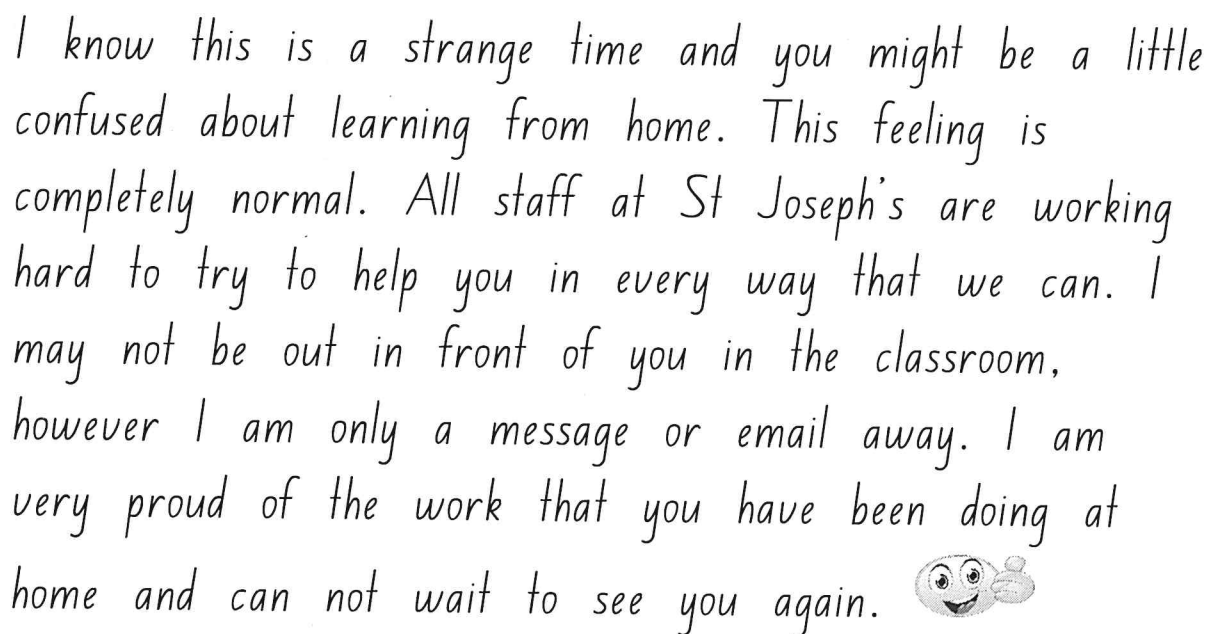 I know this is a strange time and you might be a little
confused about learning from home. This feeling is
completely normal. All staff at St Joseph's are working
hard to try to help you in every way that we can. I
may not be out in front of you in the classroom,
however I am only a message or email away. I am
very proud of the work that you have been doing at
home and can not wait to see you again.